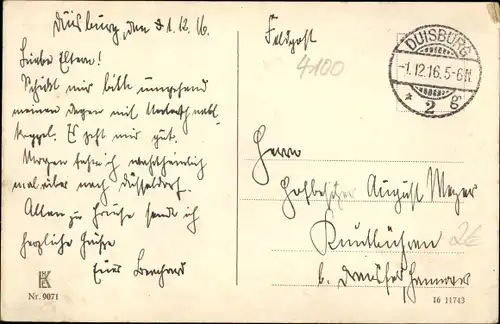 Duisburg, den 1.12.16.
Liebe Eltern!
Schickt mir bitte umgehend
meinen Degen mit Unterschnall
koppel. Es geht mir gut.
Morgen fahre ich wahrscheinlich
mal rüber nach Düsseldorf.
Allen zu Hause sendet ich
herzliche Grüße
Euer Bernhard
Nr. 9071
Feldpost
4100
DUISBURG
-1.12.16.5-6N.
* 2
Herrn
Hofbesitzer August Meyer
2€
b. Dransfeld Hannover
16 11743